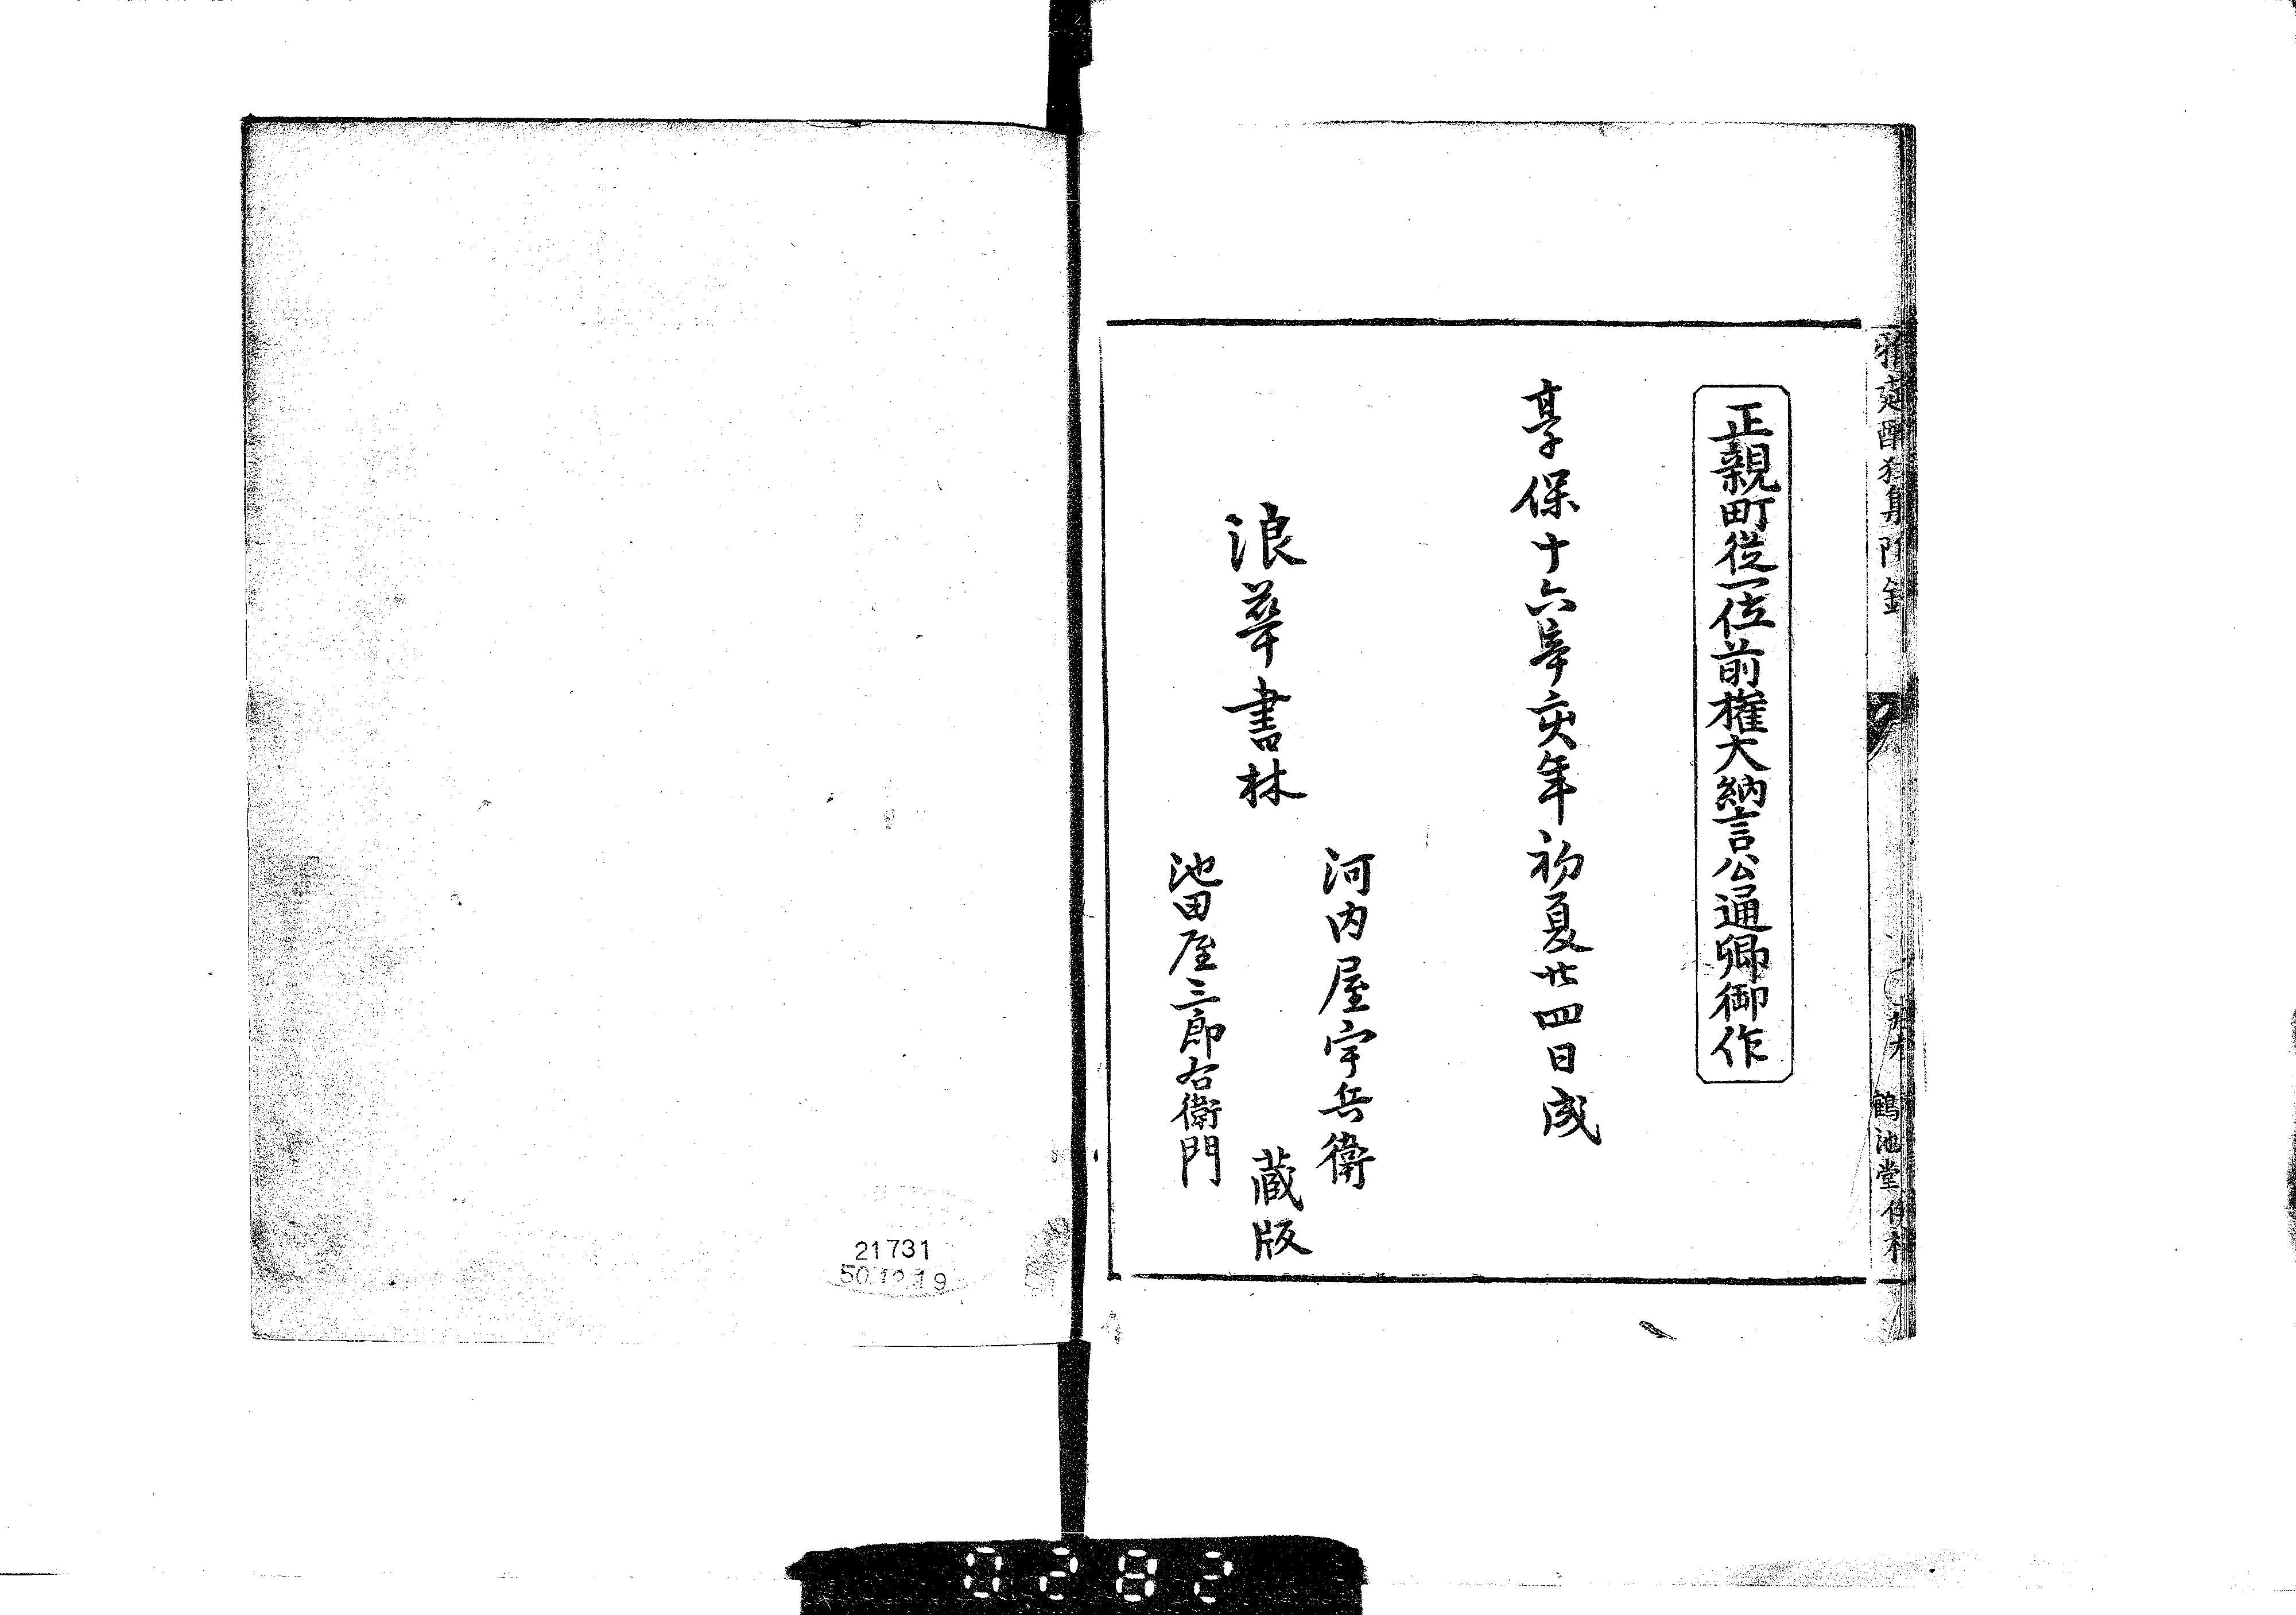 正親町従一位前権大納言公通卿御作
享保十六辛亥年初夏廿四日成
浪華書林
河内屋宇兵衛
池田屋三郎右衛門
蔵版
鶴池堂
21731
50.12.19
0282